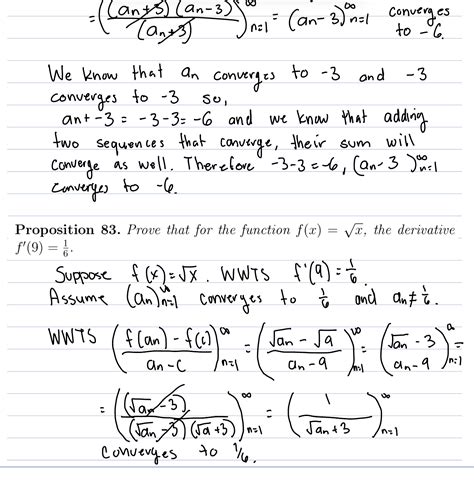 = ( (an+3) (an-3) / (an+3) )^∞ n=1 = (an-3)^∞ n=1 converges to -6.
We know that an converges to -3 and -3
converges to -3 so,
an+-3 = -3-3 = -6 and we know that adding
two sequences that converge, their sum will
converge as well. Therefore -3-3=-6, (an-3)^∞ n=1
converges to -6.
Proposition 83. Prove that for the function f(x) = √x, the derivative
f′(9) = 1/6.
Suppose f(x)=√x. WWTS f'(9)=1/6.
Assume (an)^∞ n=1 converges to 1/6 and an≠1/6.
WWTS ( f(an) - f(c) / an-c )^∞ n=1 = ( √an - √9 / an-9 )^∞ n=1 = ( √an - 3 / an-9 )^∞ n=1 =
= ( (√an-3) / (√an-3)(√a+3) )^∞ n=1 = ( 1 / √an+3 )^∞ n=1
converges to 1/6.